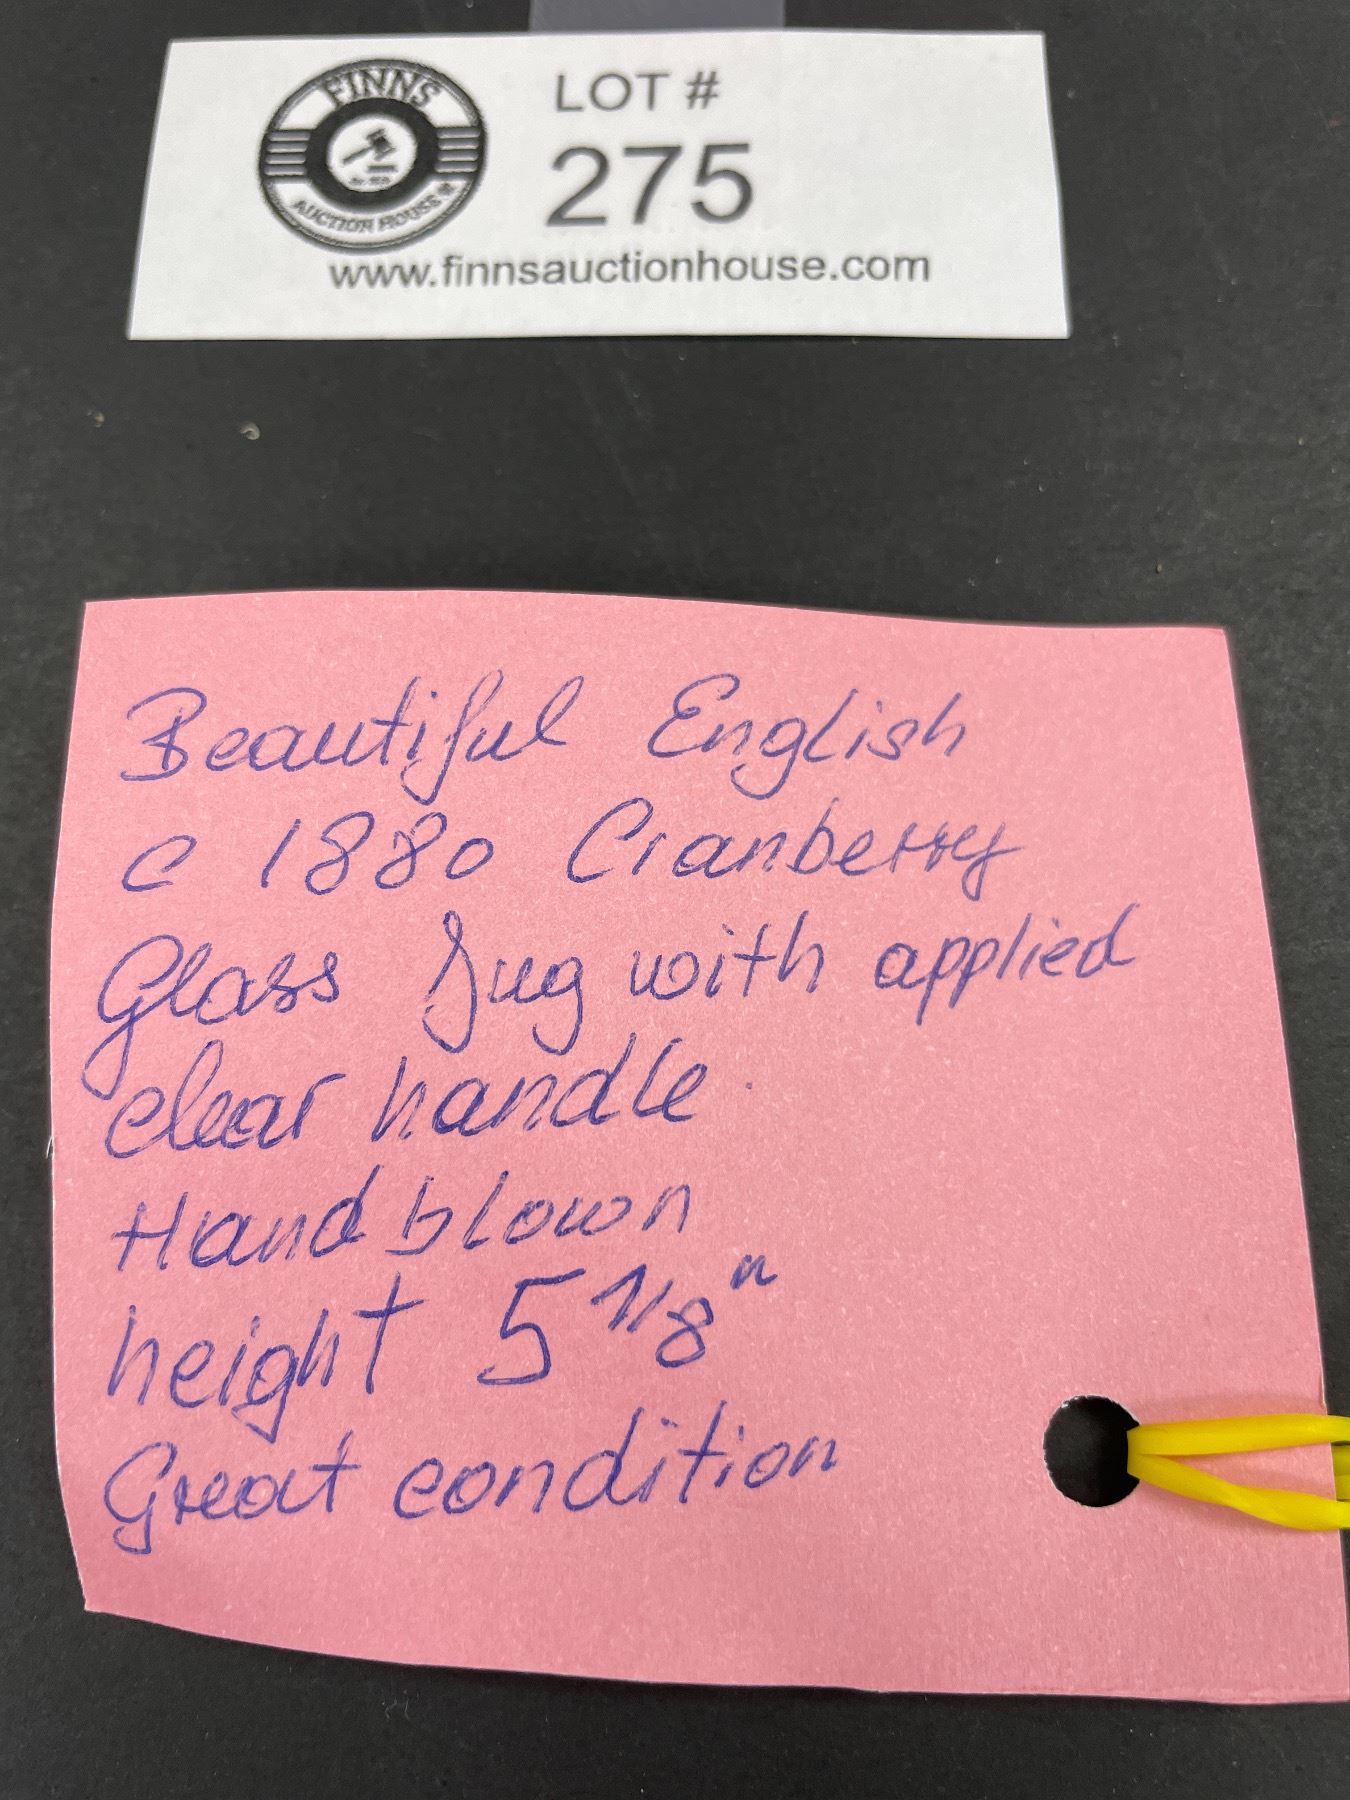 FINNS
AUCTION HOUSE
LOT #
275
www.finnsauctionhouse.com
Beautiful English
c 1880 Cranberry
Glass Jug with applied
clear handle.
Hand blown
height 5 1/8"
Great condition